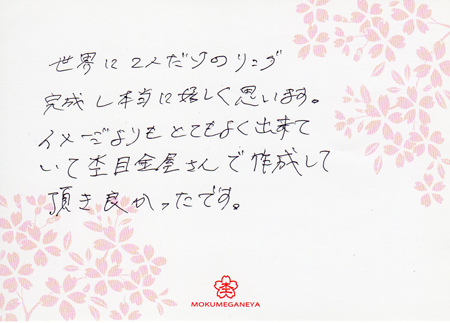 世界に2人だけのリング
完成し本当に嬉しく思います。
イメージよりもとてもよく出来て
いて杢目金屋さんで作成して
頂き良かったです。
MOKUMEGANEYA